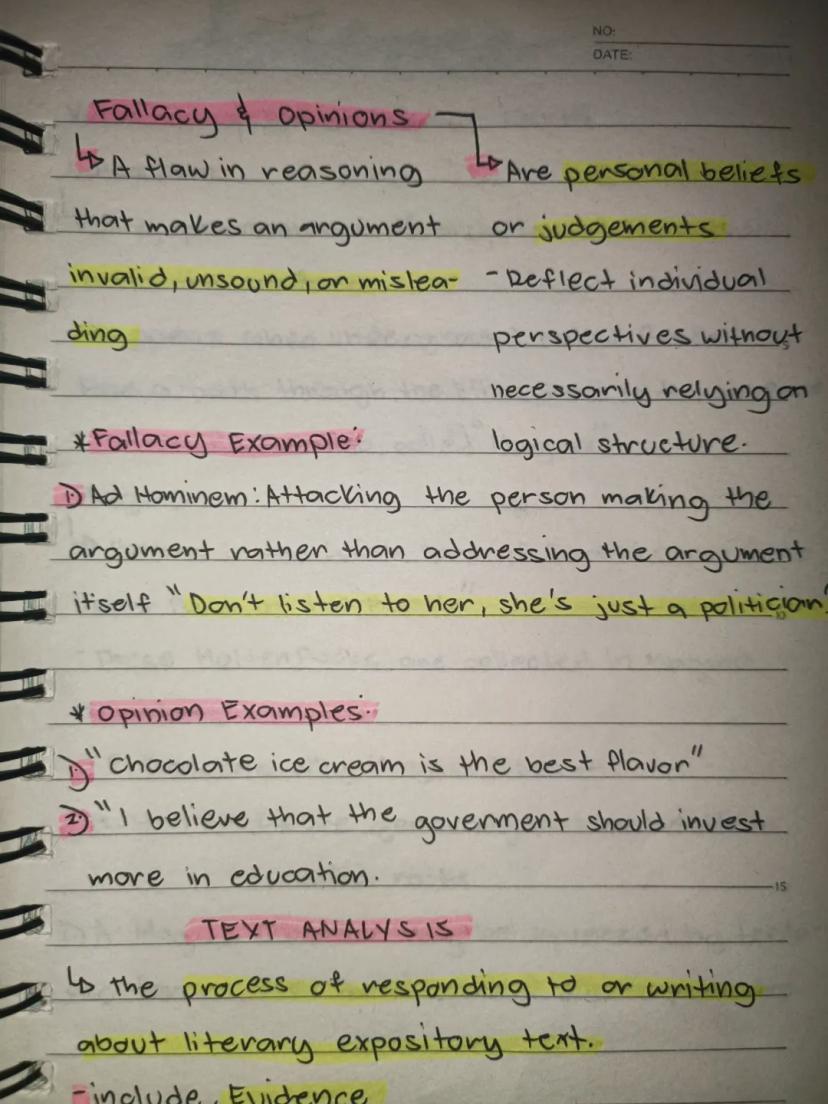 NO:
DATE:
Fallacy & Opinions
↳ A flaw in reasoning
that makes an argument
invalid, unsound, or mislea-
ding
↳ Are personal beliefs
or judgements
- Reflect individual
perspectives without
necessarily relying on
logical structure.
* Fallacy Example:
1) Ad Hominem: Attacking the person making the
argument rather than addressing the argument
itself "Don't listen to her, she's just a politician"
* Opinion Examples:
1) "Chocolate ice cream is the best flavor"
2) "I believe that the goverment should invest
more in education.
15
TEXT ANALYSIS
↳ the process of responding to or writing
about literary expository text.
- include Evidence